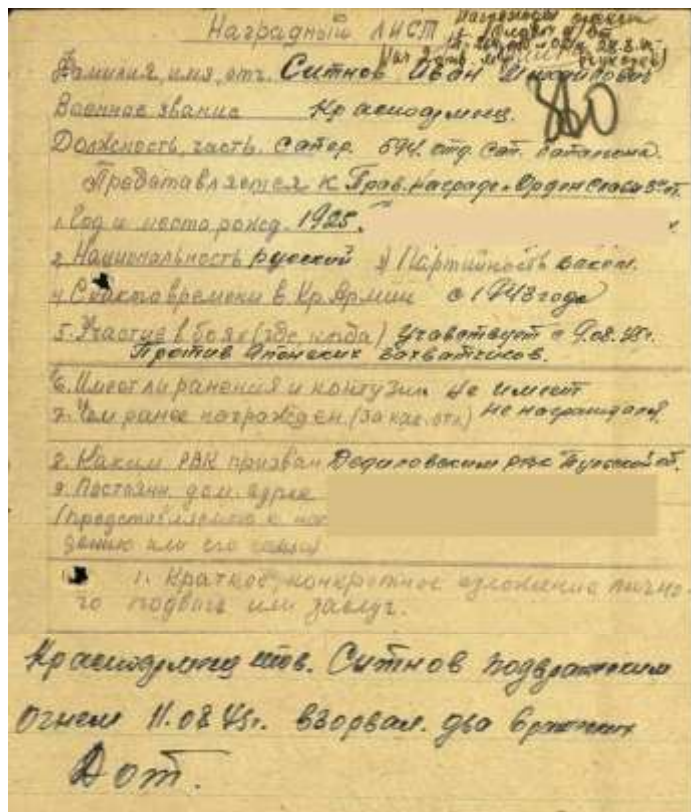 Наградный лист
Фамилия, имя, отч. Ситнов Иван Михайлович
380
Военное звание Красноармеец.
Должность, часть. Сапер. 594. отд. сап. батальона.
Представляется к Прав. награде. Орден Славы 3 ст.
1. Год и место рожд. 1925.
2. Национальность русский 3) Партийность
4) С какого времени в Кр. Армии с 1943 года
5. Участие в боях (где, когда) Учавствует с 9.08.45г.
Против Японских захватчиков.
6. Имеет ли ранения и контузии Не имеет
7. Чем ранее награжден (за как. отл.) Не награждался.
8. Каким РВК призван Дедиловским рвк Тульской об.
9. Постоян. дом. адрес
1. Краткое, конкретное изложение лично-
го подвига или заслуг.
Красноармеец тов. Ситнов под вражеским
огнем 11.08.45г. взорвал. два вражеских
Дот.